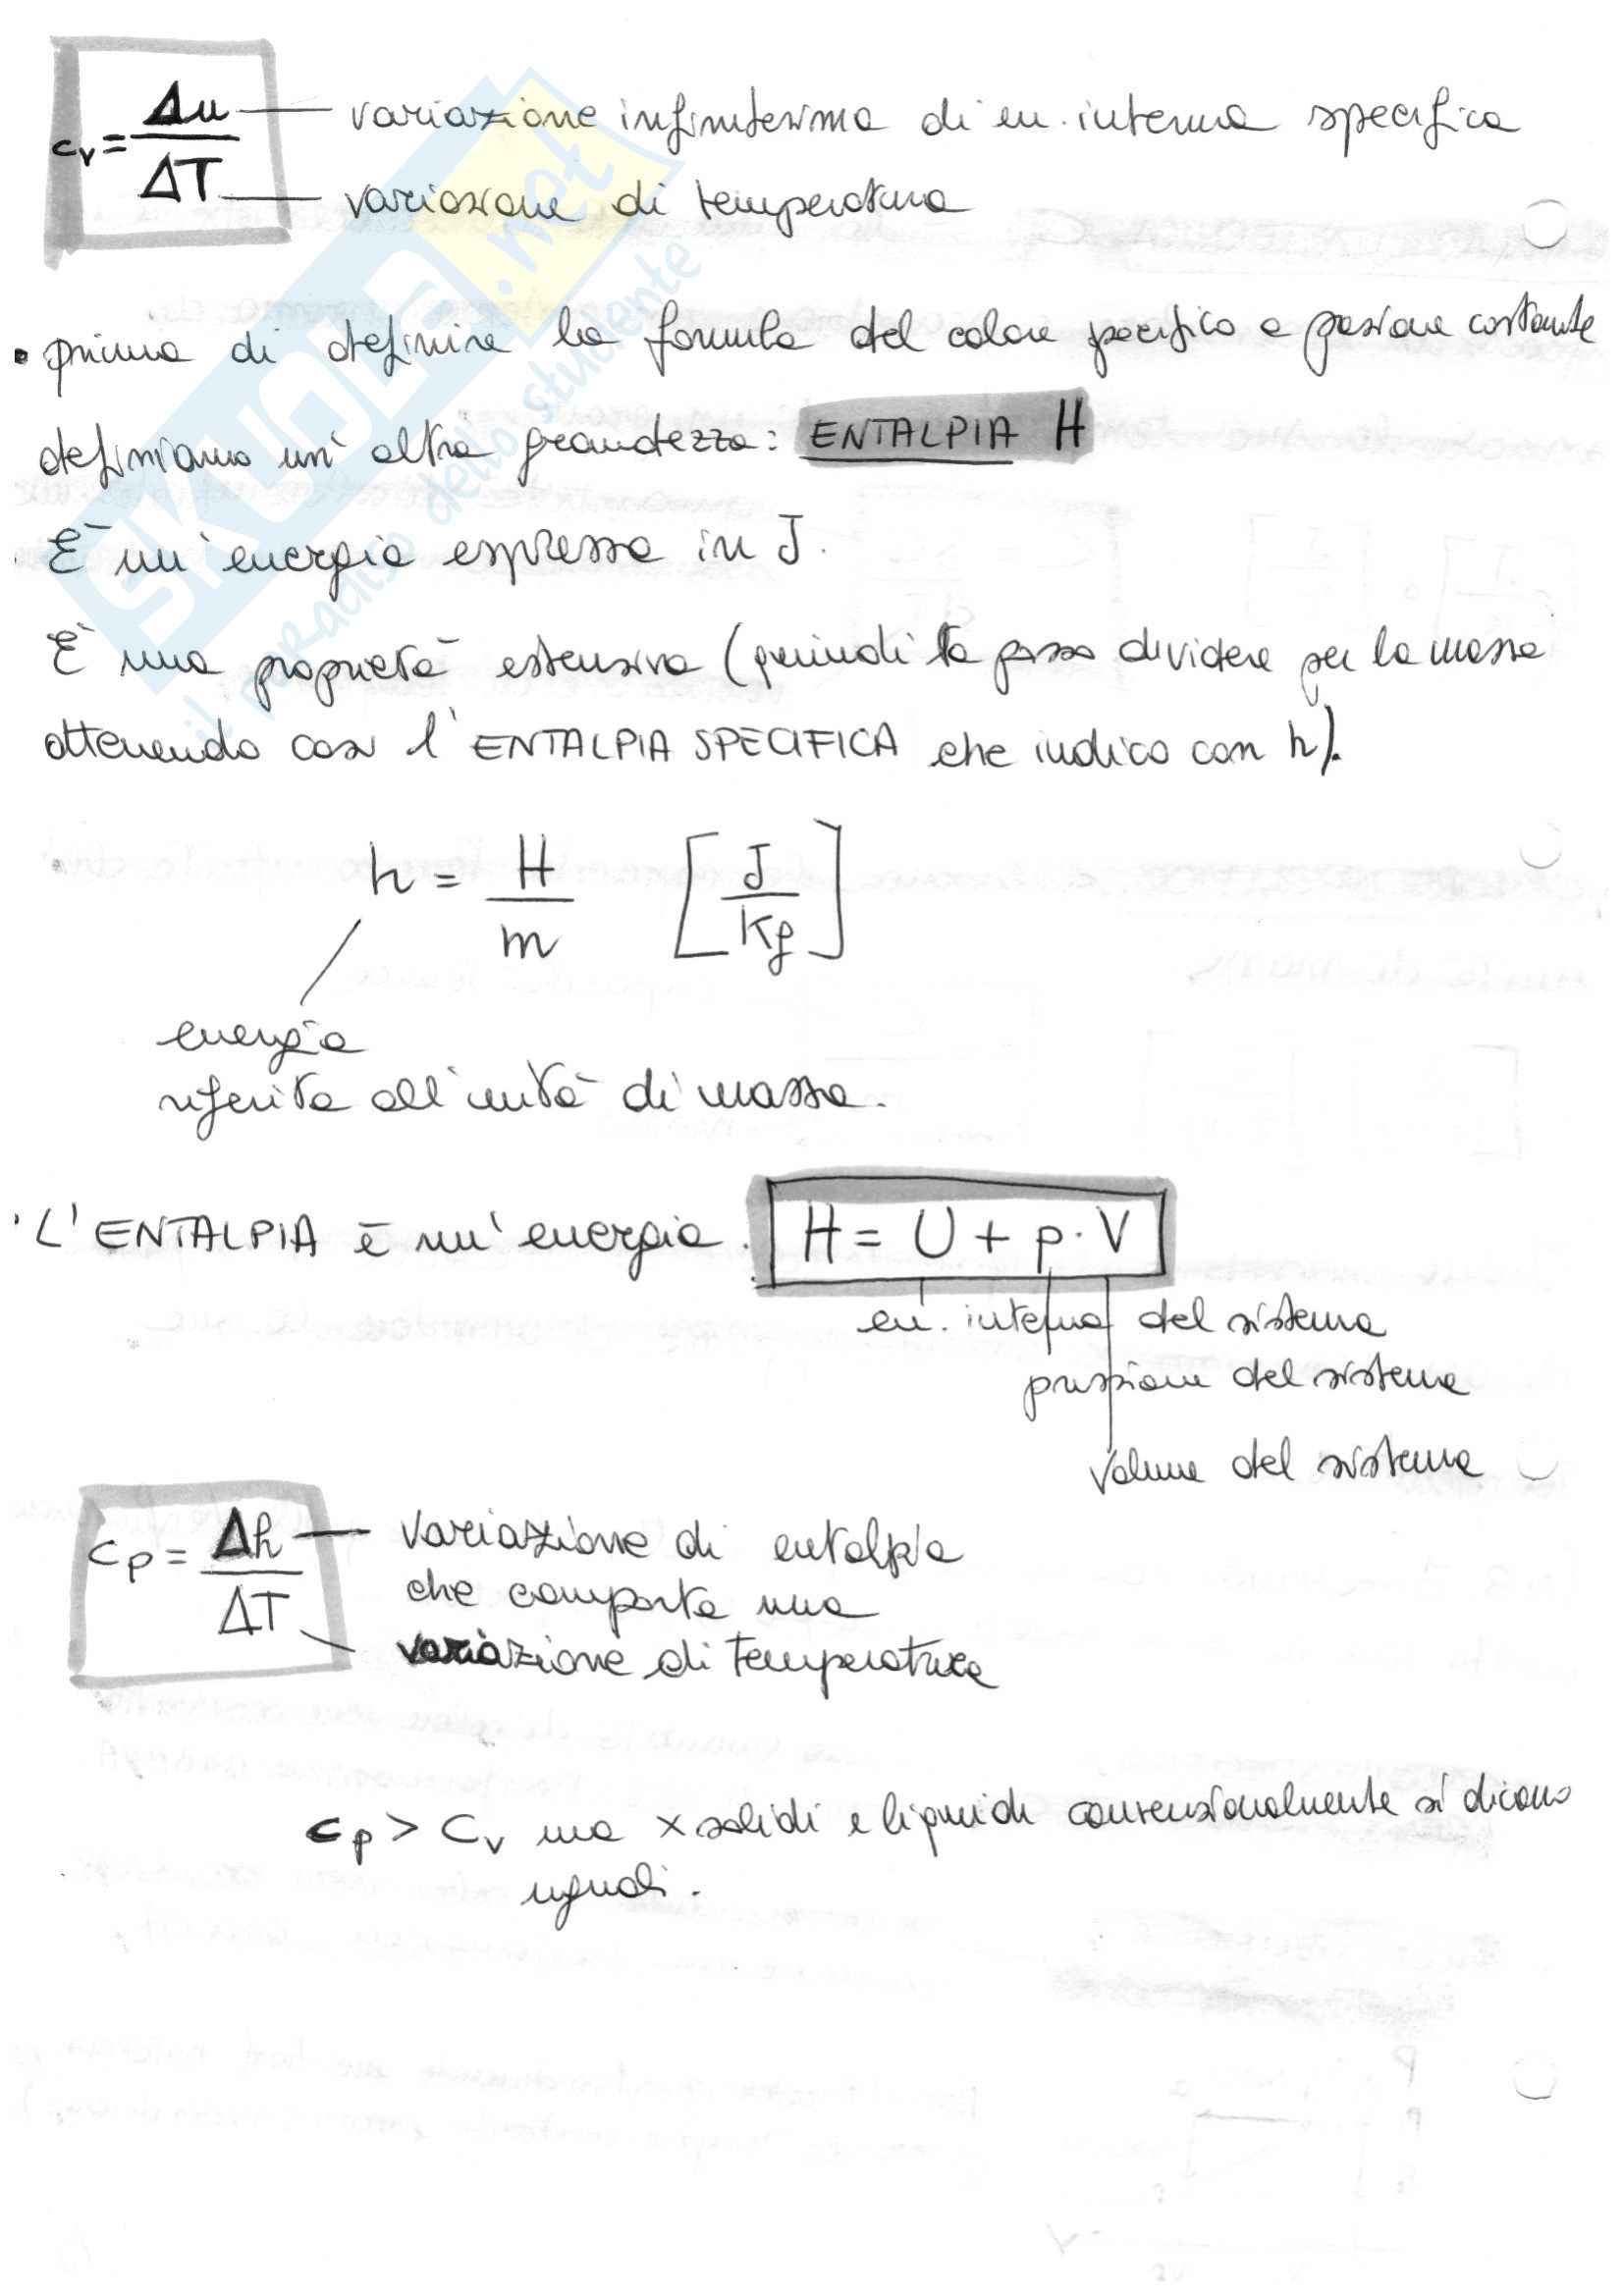 cv = Δu / ΔT — variazione infinitesima di en. interna specifica
variazione di temperatura
• prima di definire la formula del calore specifico a pressione costante
definiamo un'altra grandezza: ENTALPIA H
È un'energia espressa in J.
È una proprietà estensiva (quindi la posso dividere per la massa
ottenendo così l'ENTALPIA SPECIFICA che indico con h).
h = H / m [J / Kg]
energia
riferita all'unità di massa.
· L'ENTALPIA è un'energia. H = U + p · V
en. interna del sistema
pressione del sistema
volume del sistema
cp = Δh / ΔT — variazione di entalpia
che comporta una
variazione di temperatura
cp > cv ma x solidi e liquidi convenzionalmente si dicono
uguali.
SKUOLA.net
il paradiso dello studente